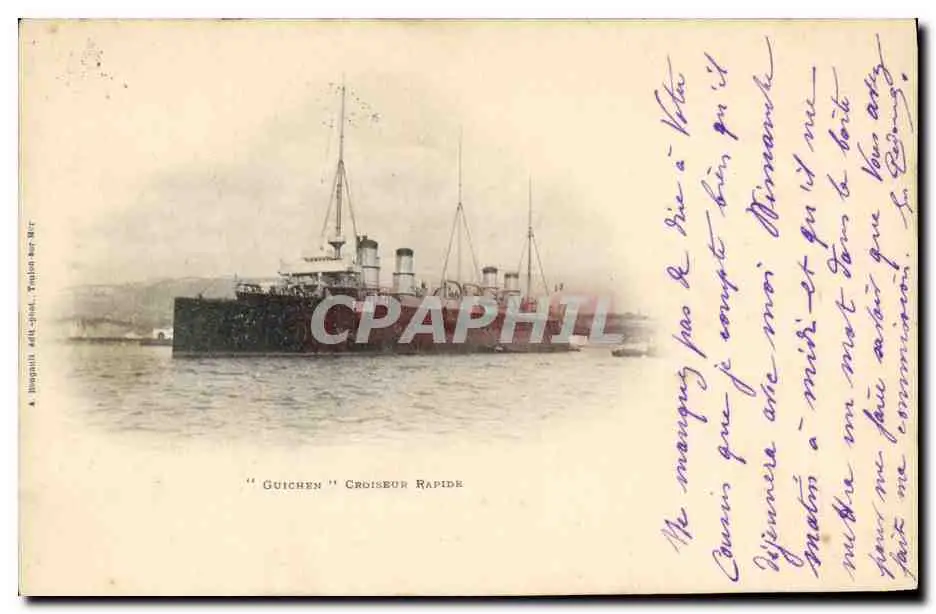 A. Bougault édit.-phot., Toulon-sur-Mer
CPAPHIL
" GUICHEN " CROISEUR RAPIDE
Ne manquez pas de dire à Votre
Cousin que je compte bien qu'il
déjeunera avec moi Dimanche
matin à midi et qu'il me
mettra un mot dans la boîte
pour me faire savoir que Vous avez
fait ma commission.